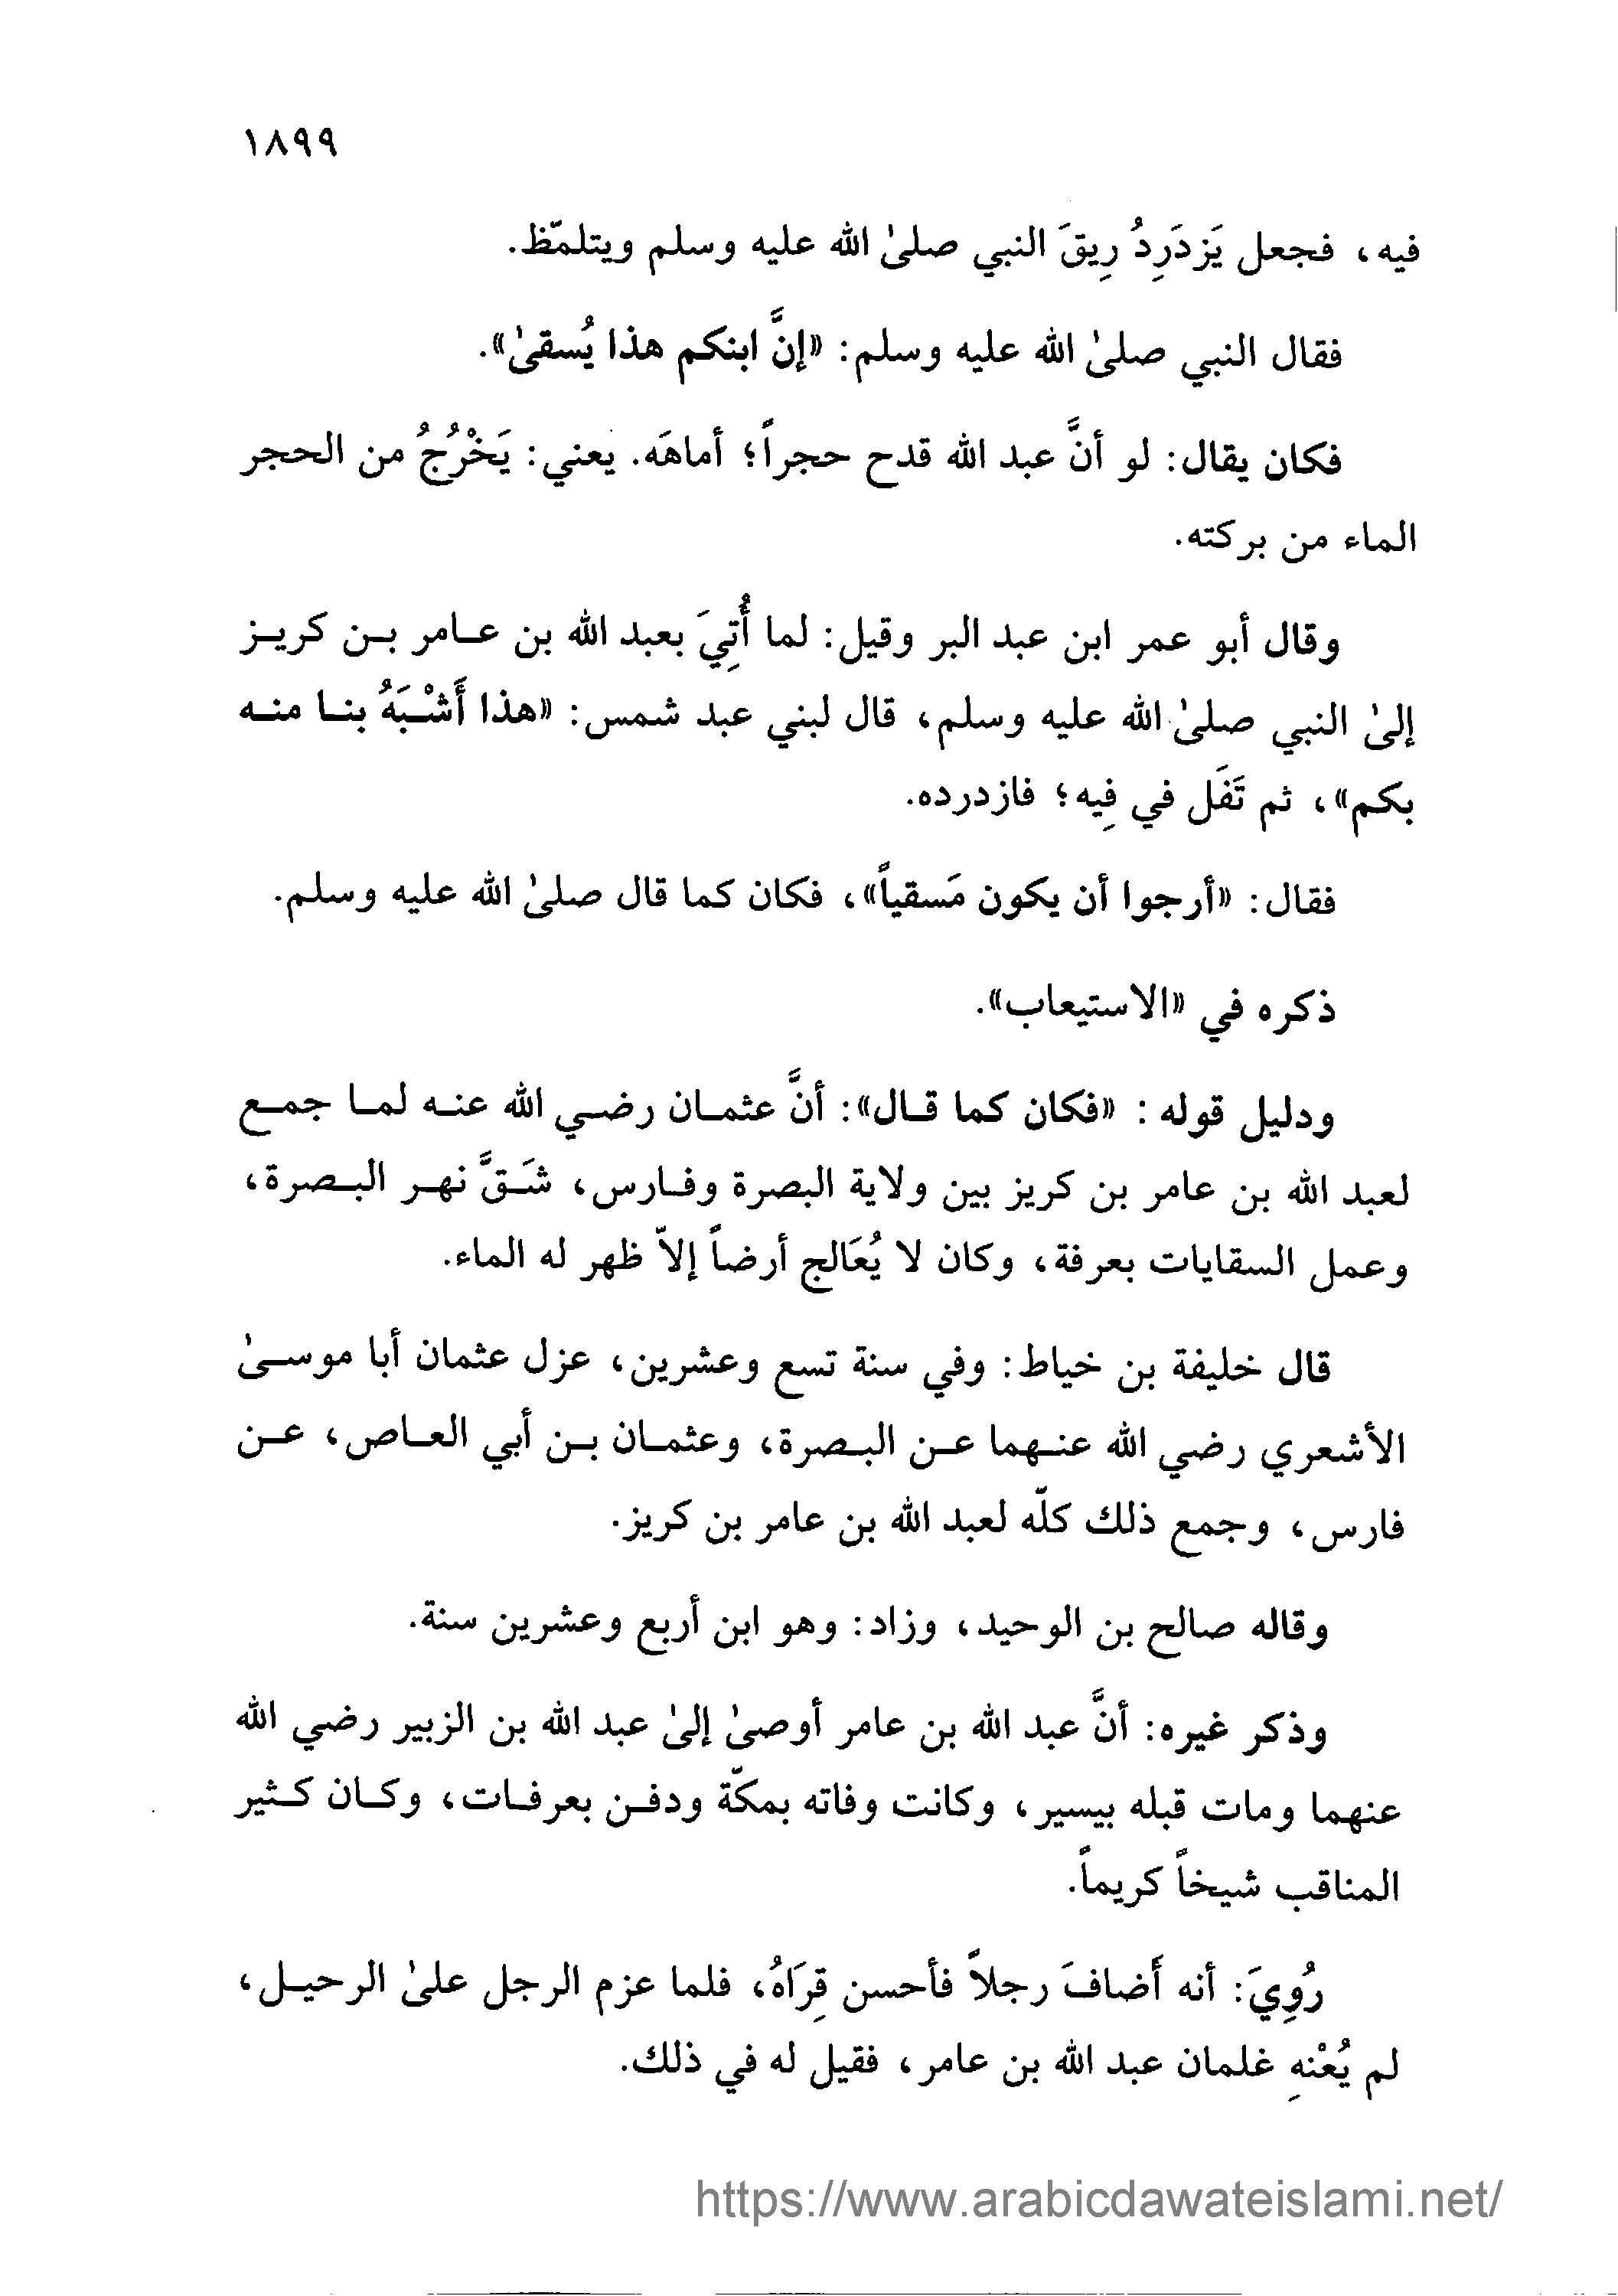 ١٨٩٩
فيه، فجعل يَزدَرِدُ رِيقَ النبي صلىٰ الله عليه وسلم ويتلمّظ.
فقال النبي صلىٰ الله عليه وسلم: «إنَّ ابنكم هذا يُسقىٰ».
فكان يقال: لو أنَّ عبد الله قدح حجراً؛ أماهَه. يعني: يَخْرُجُ من الحجر
الماء من بركته.
وقال أبو عمر ابن عبد البر وقيل: لما أُتِيَ بعبد الله بن عـامر بـن كريـز
إلىٰ النبي صلىٰ الله عليه وسلم، قال لبني عبد شمس: «هذا أَشْـبَهُ بنـا منـه
بكم»، ثم تَفَل في فِيه؛ فازدرده.
فقال: «أرجوا أن يكون مَسقياً»، فكان كما قال صلىٰ الله عليه وسلم.
ذكره في «الاستيعاب».
ودليل قوله: «فكان كما قـال»: أنَّ عثمـان رضـي الله عنـه لمـا جمـع
لعبد الله بن عامر بن كريز بين ولاية البصرة وفـارس، شَـقَّ نهـر البـصرة،
وعمل السقايات بعرفة، وكان لا يُعَالج أرضاً إلاّ ظهر له الماء.
قال خليفة بن خياط: وفي سنة تسع وعشرين، عزل عثمان أبا موسـىٰ
الأشعري رضي الله عنـهما عـن البـصرة، وعثمـان بـن أبي العـاص، عـن
فارس، وجمع ذلك كلّه لعبد الله بن عامر بن كريز.
وقاله صالح بن الوحيد، وزاد: وهو ابن أربع وعشرين سنة.
وذكر غيره: أنَّ عبد الله بن عامر أوصىٰ إلىٰ عبد الله بن الزبير رضي الله
عنهما ومات قبله بيسير، وكانت وفاته بمكّة ودفـن بعرفـات، وكـان كـثير
المناقب شيخاً كريماً.
رُوِيَ: أنه أَضافَ رجلاً فأحسن قِرَاهُ، فلما عزم الرجل علىٰ الرحيـل،
لم يُعْنهِ غلمان عبد الله بن عامر، فقيل له في ذلك.
https://www.arabicdawateislami.net/